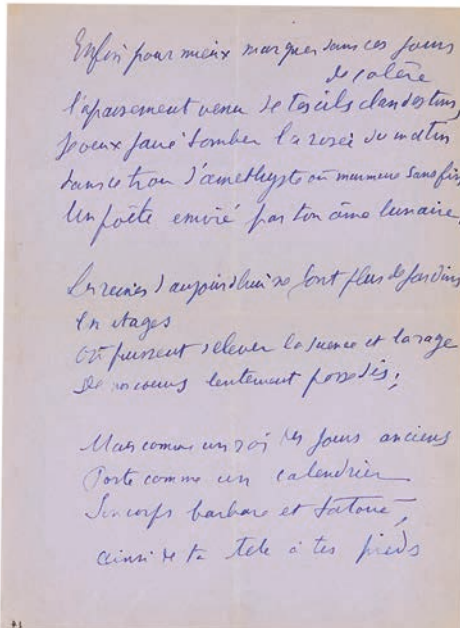 Enfin pour mieux marquer dans ces jours
de colère
l'apaisement venu de tes cils clandestins,
Je veux faire tomber la rosée du matin
dans ce trou d'améthyste où murmure sans fin
Un poète enivré par ton âme lunaire,
Les reines d'aujourd'hui ne font plus de jardins
En étages
Où puissent s'élever la science et la rage
De nos coeurs lentement possédés;
Mais comme un roi des jours anciens
Porte comme un calendrier
Son corps barbare et tatoué,
ainsi de ta tête à tes pieds
14